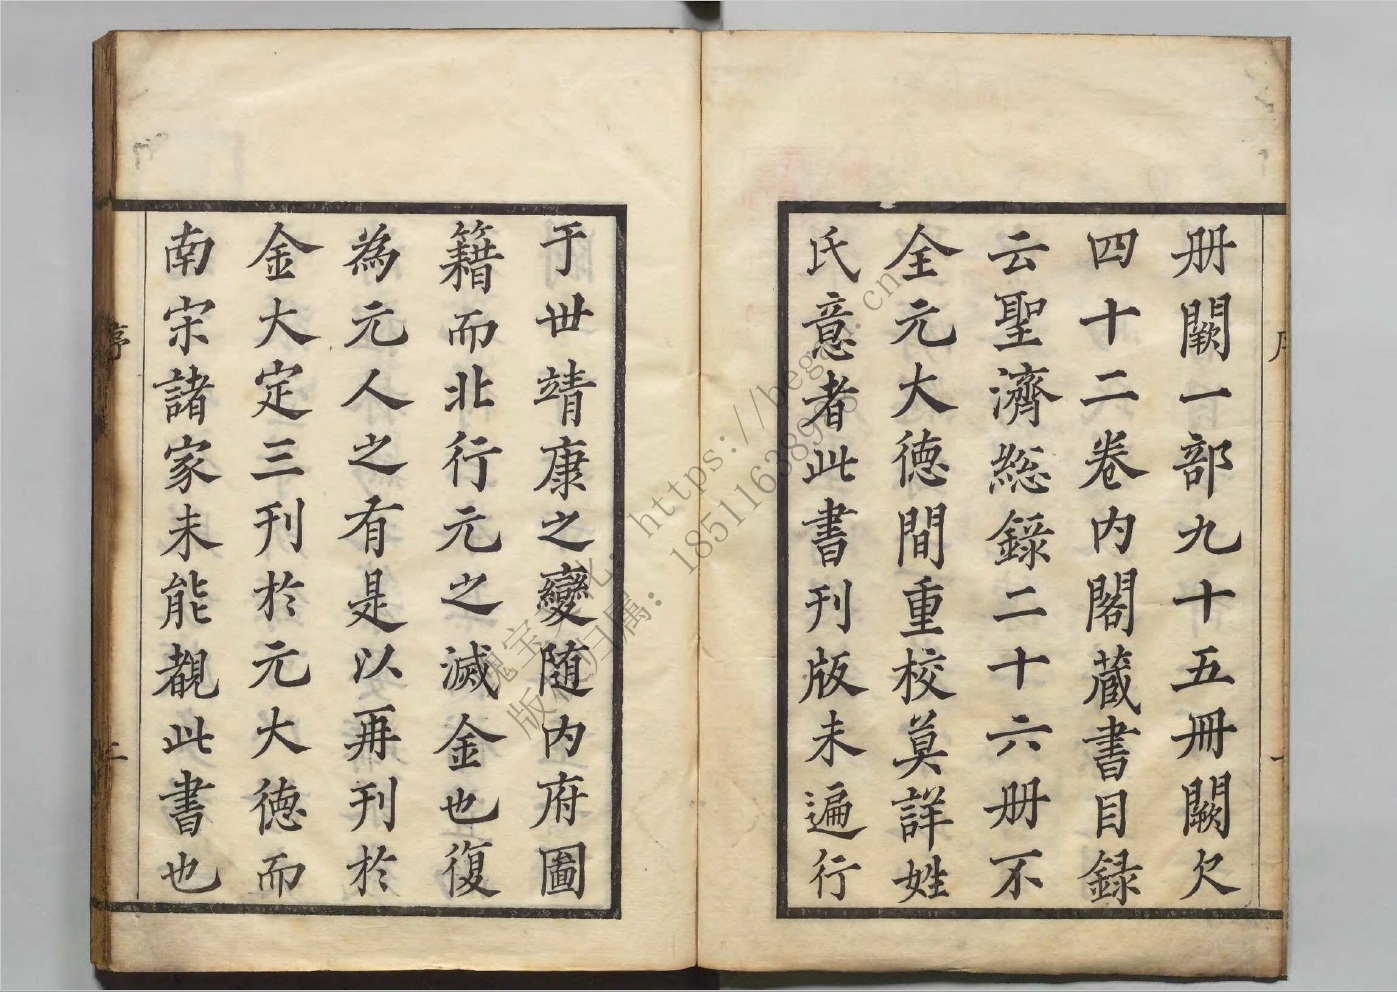 册闕一部九十五冊闕欠
四十二卷内閣蔵書目録
云聖濟総錄二十六册不
全元大徳間重校莫詳姓
氏意者此書刊版未遍行
于世靖康之變随内府圖
籍而北行元之滅金也復
為元人之有是以再刊於
金大定三刊於元大徳而
南宋諸家未能覩此書也
序
二
版权归属：18511638918